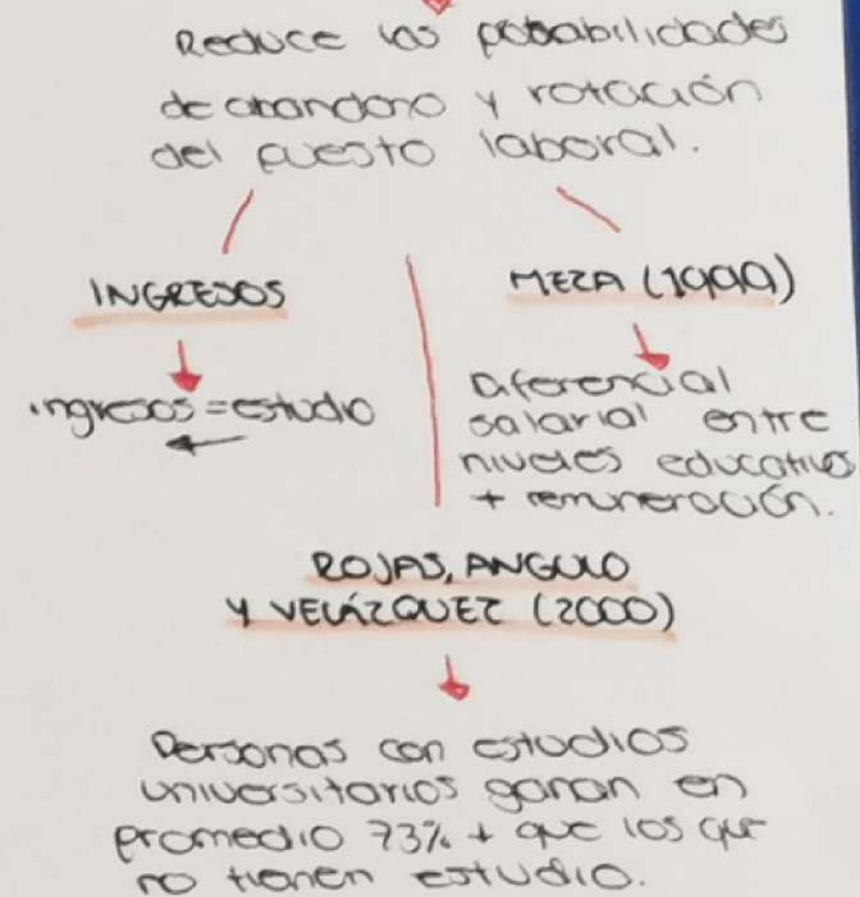 Reduce las probabilidades
de abandono y rotación
del puesto laboral.
INGRESOS
ingresos = estudio
MEZA (1999)
Diferencial
salarial entre
niveles educativos
+ remuneración.
ROJAS, ANGULO
Y VELÁZQUEZ (2000)
Personas con estudios
universitarios ganan en
promedio 73% + que los que
no tienen estudio.